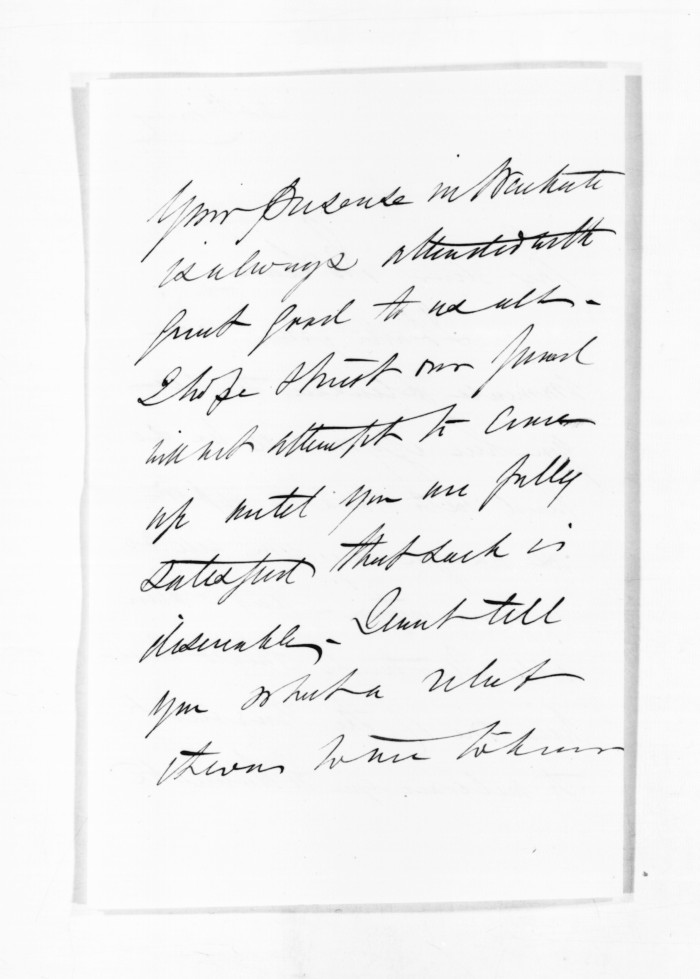 Your presense in Waikato
is always attended with
great good to us all -
I hope & trust our friend
will not attempt to come
up until you are fully
satisfied that such is
desireable, - I cant tell
you what a relief
it was to me to know